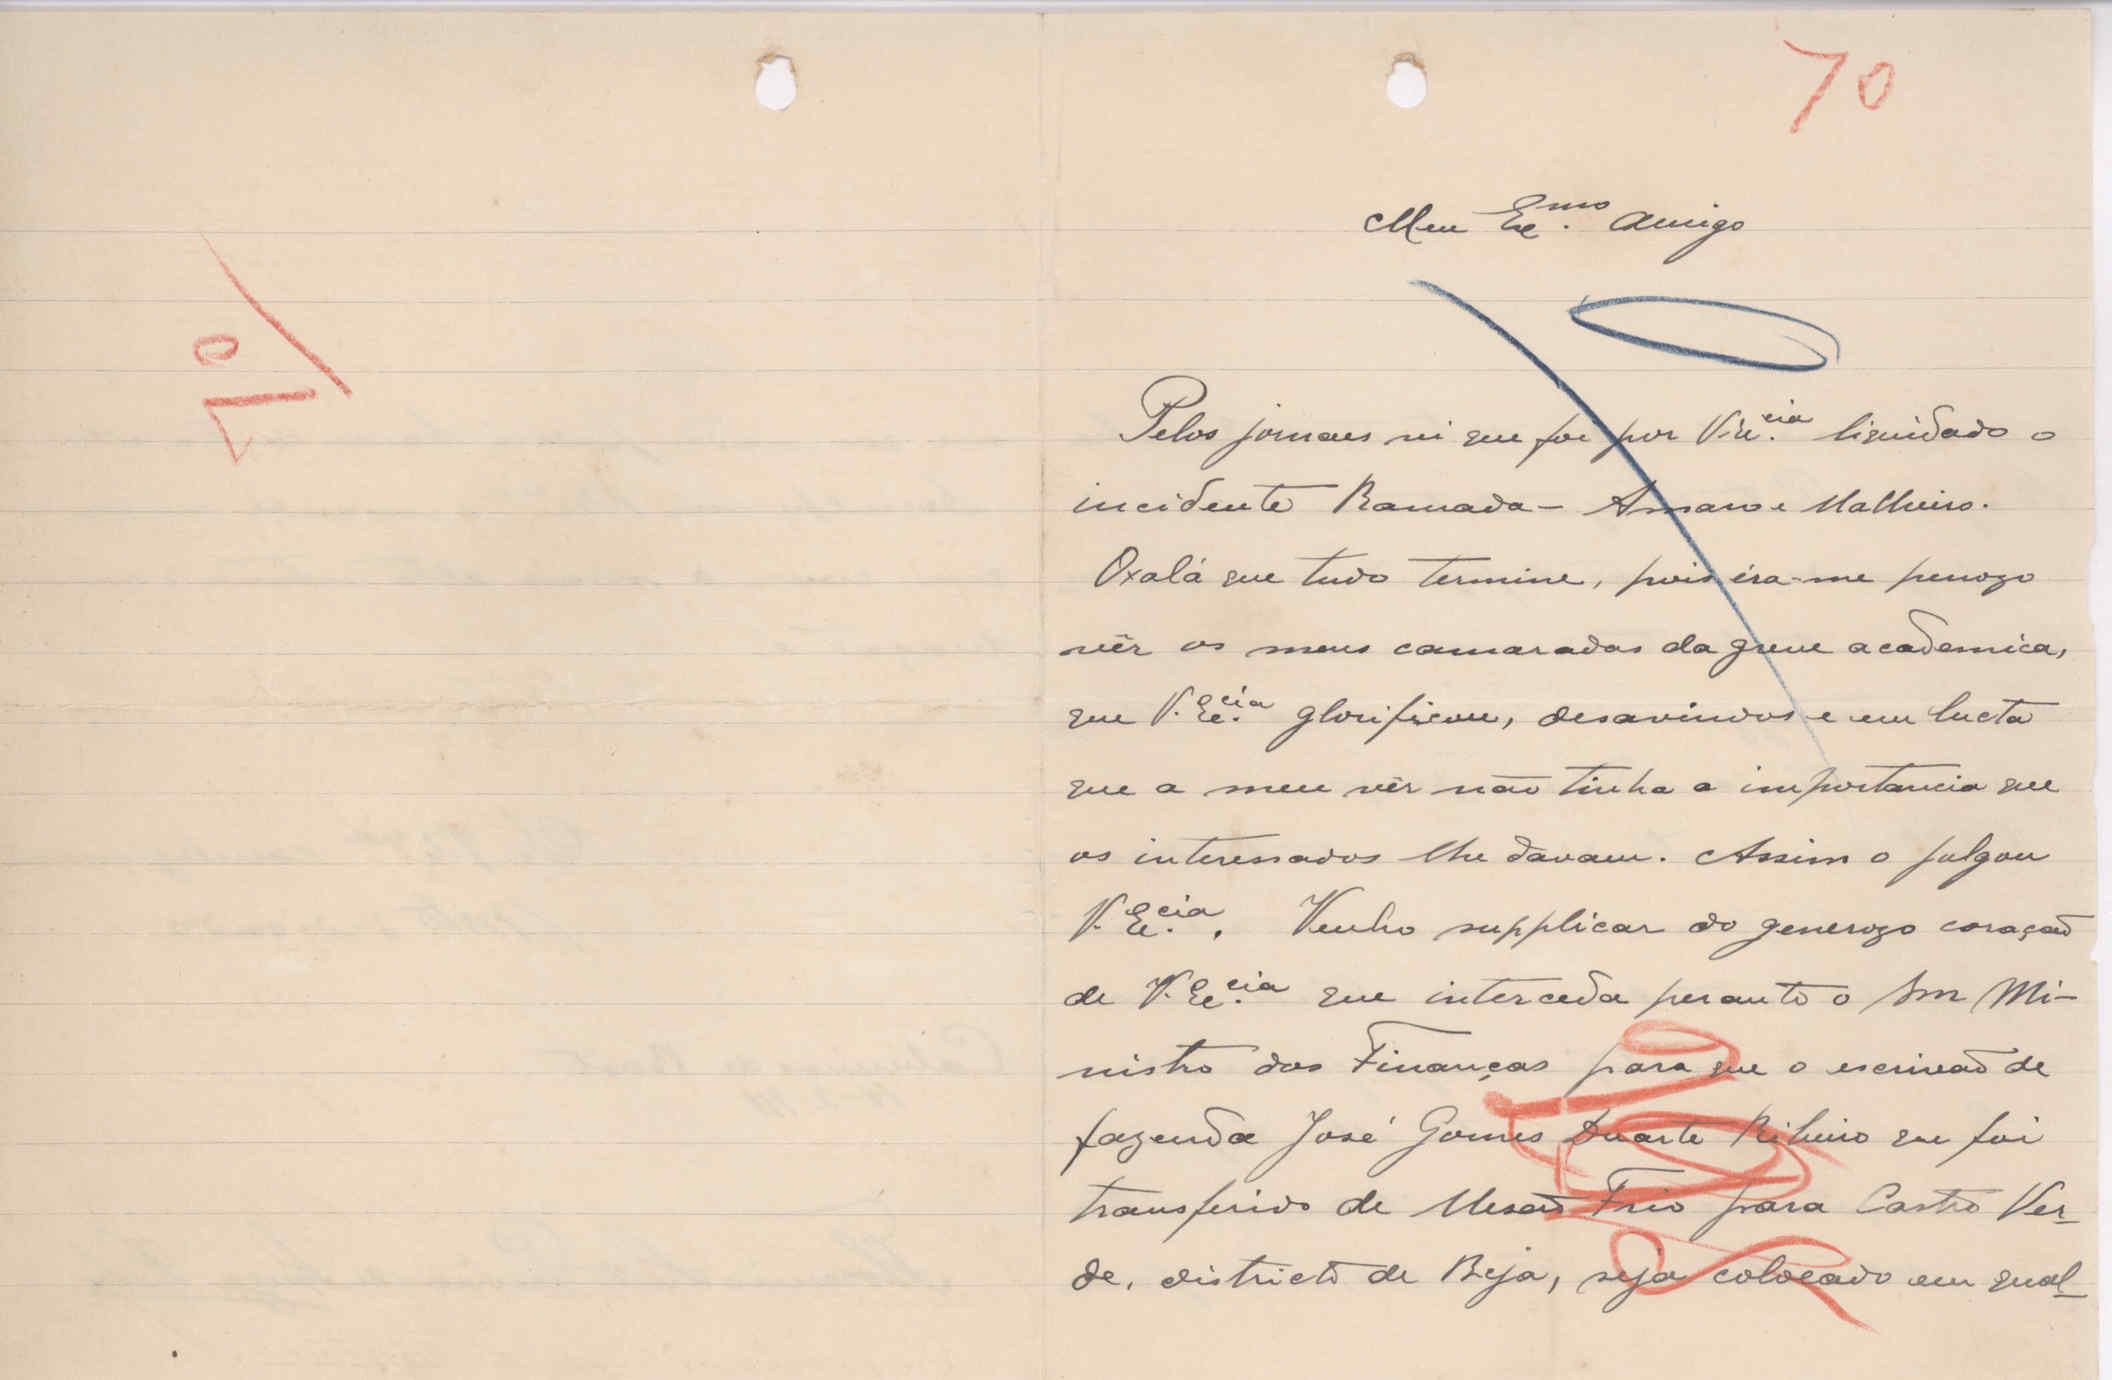 70
70
Meu Ex.mo Amigo
Pelos jornaes vi que foi por V. Ex.cia liquidado o
incidente Ramada - Amaro e Malheiro.
Oxalá que tudo termine, pois éra-me penozo
vêr os meus camaradas da greve academica,
que V. Ex.cia glorificou, desavindos e em lucta
que a meu vêr não tinha a importancia que
os interessados lhe davam. Assim o julgou
V. Ex.cia. Venho supplicar do generozo coração
de V. Ex.cia que interceda perante o Snr Mi-
nistro das Finanças para que o escrivão de
fazenda José Gomes Duarte Ribeiro que foi
transferido de Mesão Frio para Castro Ver-
de, districto de Beja, seja colocado em qual-